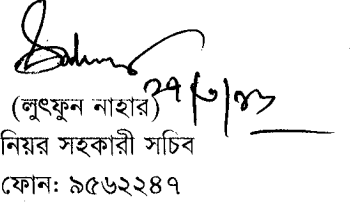 (লুৎফুন নাহার)
নিয়র সহকারী সচিব
ফোন: ৯৫৬২২৪৭